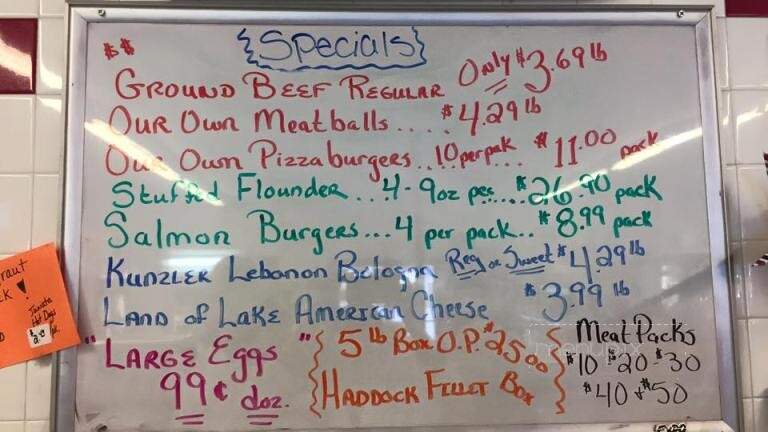 $$
{Specials}
Ground Beef Regular Only $3.69 lb
Our Own Meatballs.... $4.29 lb
Our Own Pizzaburgers..10 per pak... $11.00 pack
Stuffed Flounder...4-9oz pcs....$26.90 pack
Salmon Burgers...4 per pack..$8.99 pack
Kunzler Lebanon Bologna Reg or Sweet $4.29 lb
Land of Lake American Cheese $3.99 lb
"Large Eggs"
99¢ doz.
{5 lb Box O.P. $25.00}
{Haddock Fillet Box}
Meat Packs
$10 $20 $30
$40 & $50
menupix
raut
!
Hot Dogs